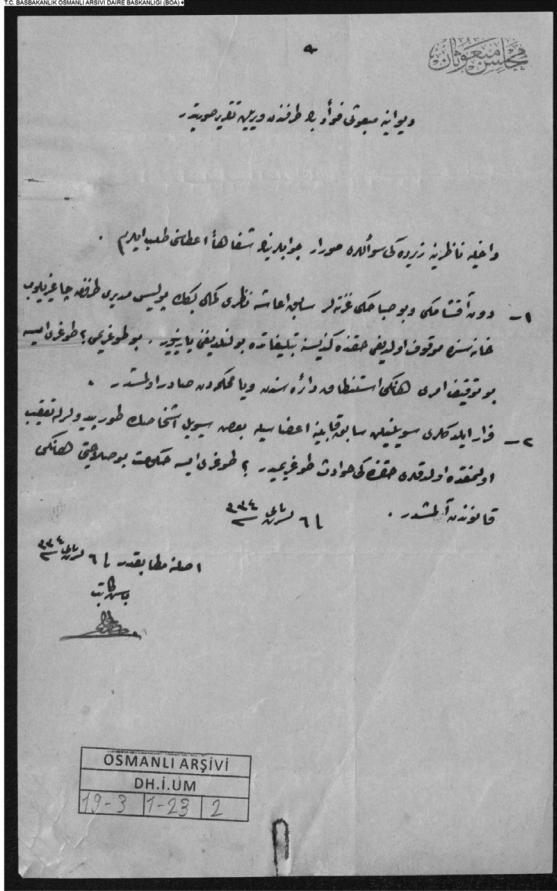 T.C. BAŞBAKANLIK OSMANLI ARŞİVİ DAİRE BAŞKANLIĞI (BOA)
مجلس مبعوثان
ديوانيه مبعوثى فؤاد بك طرفندن ويريلن تقرير صورتيدر
داخليه ناظرينه زيرده كى سؤاللره صورار جوابلرينك شفاهاً اعطاسنى طلب ايدرم .
١ـ دون آقشامكى وبو صباحكى غزته لر سابق اعاشه ناظرى كمال بكك پوليس مديرى طرفندن چاغريلوب
خانه سنده موقوف اولديغى حقنده كنديسنه تبليغاتده بولنديغنى يازييور . بو طوغريمى ؟ طوغرى ايسه
بو توقيف امرى هانكى استنطاق دائره سندن ويا محكمه دن صادر اولمشدر .
٢ـ فرار ايلدكلرى سويلنيلن سابق قابينه اعضاسيله بعض سيويل اشخاصك طورپيدولرله تعقيب
اولنمقده اولدقلرى حقنده كى حوادث طوغريميدر ؟ طوغرى ايسه حكومت بو صلاحيتى هانكى
قانوندن آلمشدر .
٦ تشرين ثانى ٣٣٤
اصلنه مطابقدر ٦ تشرين ثانى ٣٣٤
باش كاتب
OSMANLI ARŞİVİ
DH.İ.UM
19-3 1-23 2